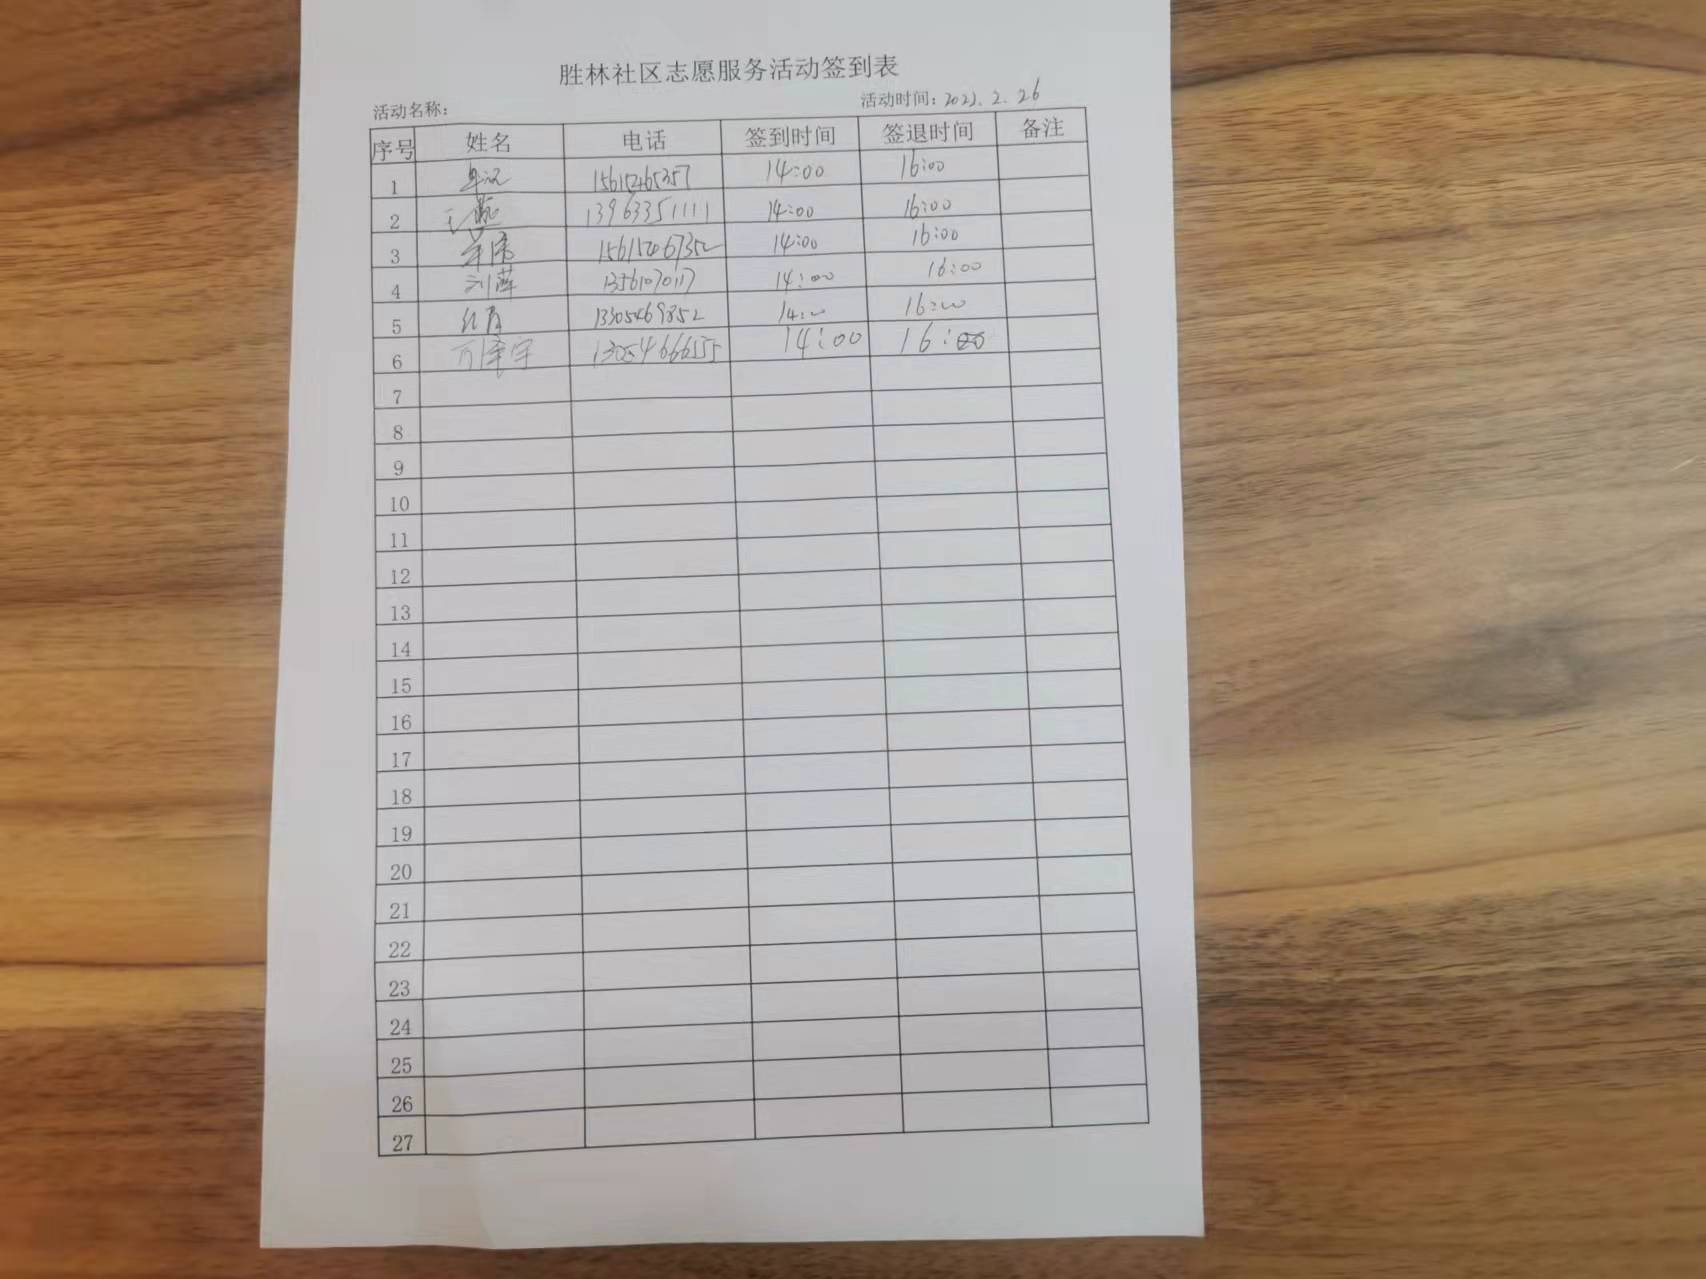 胜林社区志愿服务活动签到表
活动名称： 活动时间：2022.2.26
序号 姓名 电话 签到时间 签退时间 备注
1 15615265357 14:00 16:00
2 13963351111 14:00 16:00
3 14:00 16:00
4 刘萍 13561070117 14:00 16:00
5 13305469352 14:00 16:00
6 14:00 16:00
7
8
9
10
11
12
13
14
15
16
17
18
19
20
21
22
23
24
25
26
27